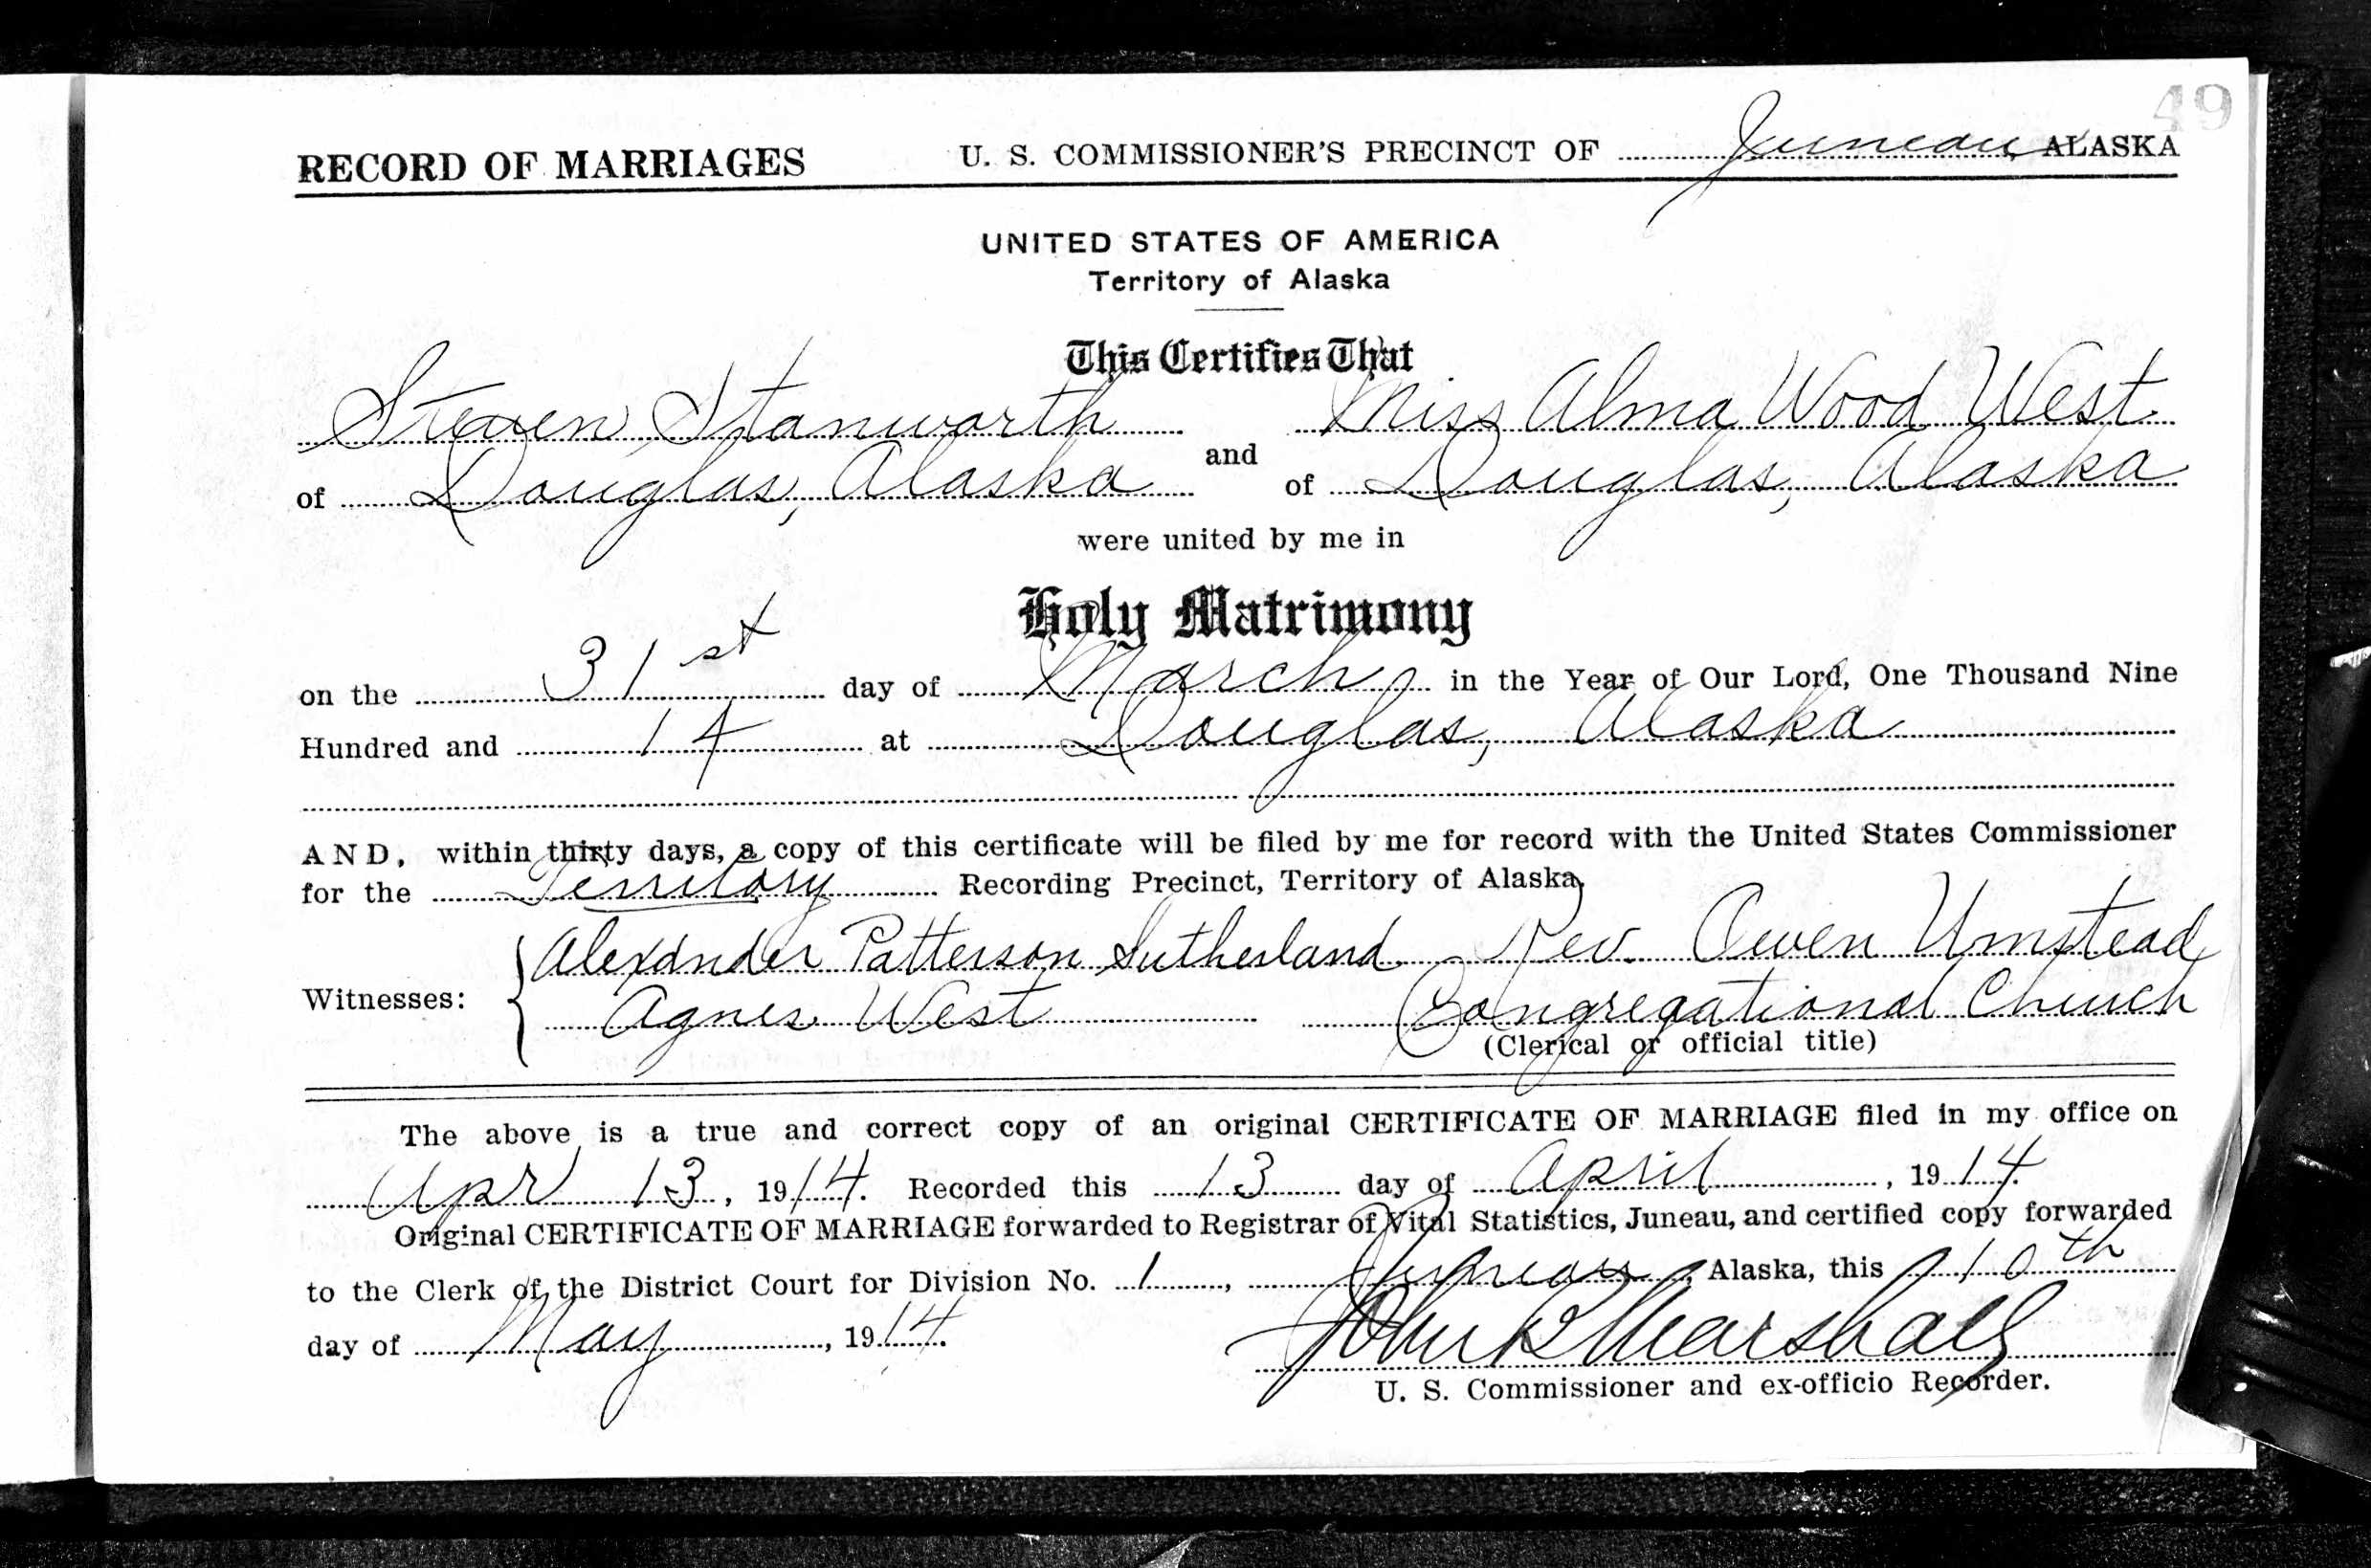 49
RECORD OF MARRIAGES U. S. COMMISSIONER'S PRECINCT OF Juneau, ALASKA
UNITED STATES OF AMERICA
Territory of Alaska
This Certifies That
Steven Stanworth and Miss Alma Wood West
of Douglas, Alaska of Douglas, Alaska
were united by me in
Holy Matrimony
on the 31st day of March in the Year of Our Lord, One Thousand Nine
Hundred and 14 at Douglas, Alaska
AND, within thirty days, a copy of this certificate will be filed by me for record with the United States Commissioner
for the Territory Recording Precinct, Territory of Alaska,
Alexander Patterson Sutherland Rev. Owen Umstead
Witnesses: Agnes West Congregational Church
(Clerical or official title)
The above is a true and correct copy of an original CERTIFICATE OF MARRIAGE filed in my office on
Apr 13, 1914. Recorded this 13 day of April, 1914.
Original CERTIFICATE OF MARRIAGE forwarded to Registrar of Vital Statistics, Juneau, and certified copy forwarded
to the Clerk of the District Court for Division No. 1, Juneau, Alaska, this 10th
day of May, 1914. John B Marshall
U. S. Commissioner and ex-officio Recorder.